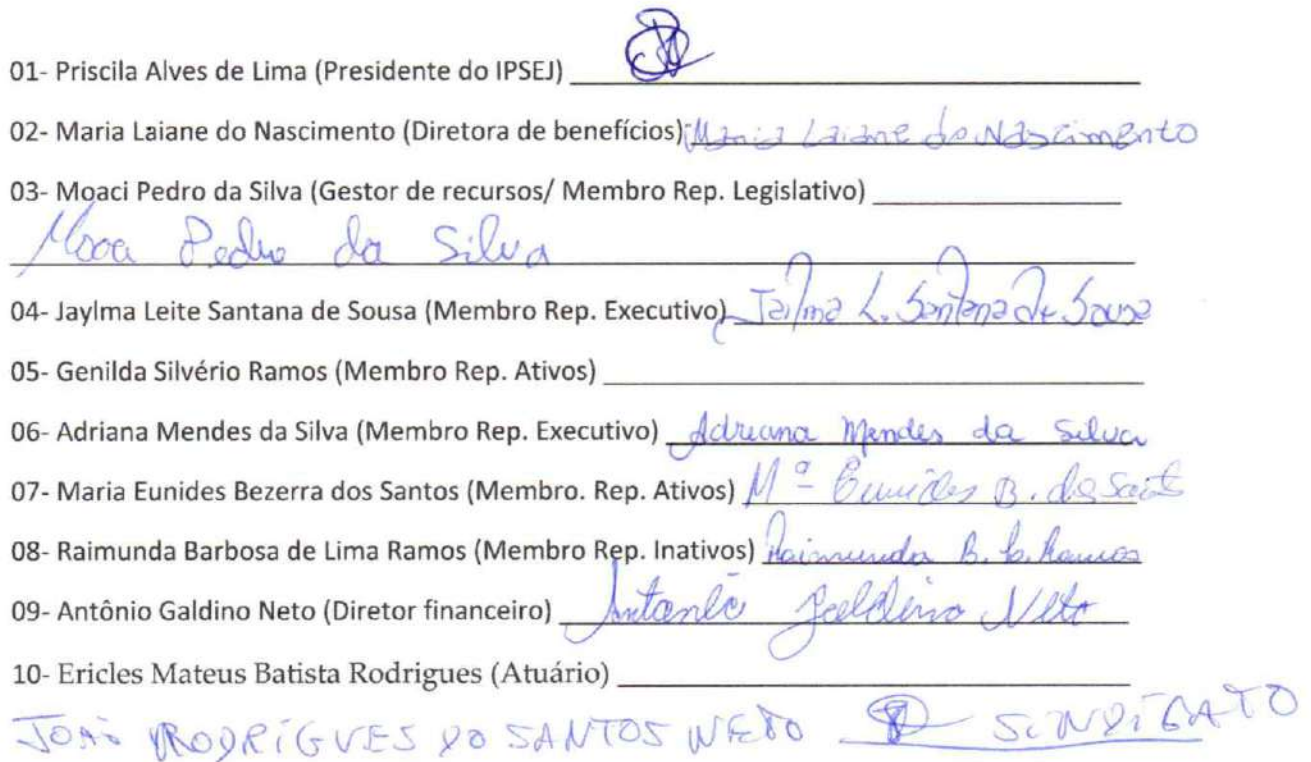 01- Priscila Alves de Lima (Presidente do IPSEJ)
02- Maria Laiane do Nascimento (Diretora de benefícios) Maria Laiane do Nascimento
03- Moaci Pedro da Silva (Gestor de recursos/ Membro Rep. Legislativo)
Moaci Pedro da Silva
04- Jaylma Leite Santana de Sousa (Membro Rep. Executivo) L. Santana de Sousa
05- Genilda Silvério Ramos (Membro Rep. Ativos)
06- Adriana Mendes da Silva (Membro Rep. Executivo) Adriana Mendes da Silva
07- Maria Eunides Bezerra dos Santos (Membro. Rep. Ativos) Mª Eunides B. dos Santos
08- Raimunda Barbosa de Lima Ramos (Membro Rep. Inativos) Raimunda B. L. Ramos
09- Antônio Galdino Neto (Diretor financeiro) Antonio Galdino Neto
10- Ericles Mateus Batista Rodrigues (Atuário)
JOÃO RODRIGUES DO SANTOS NETO SINDICATO